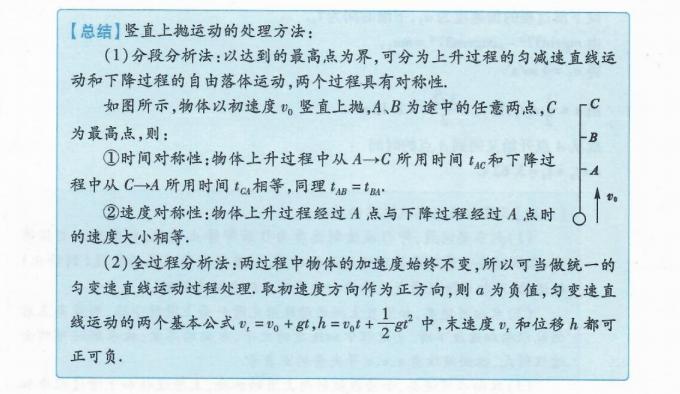 【总结】竖直上抛运动的处理方法:
(1)分段分析法:以达到的最高点为界,可分为上升过程的匀减速直线运
动和下降过程的自由落体运动,两个过程具有对称性.
如图所示,物体以初速度v₀竖直上抛,A、B为途中的任意两点,C
为最高点,则:
①时间对称性:物体上升过程中从A→C所用时间t_AC和下降过
程中从C→A所用时间t_CA相等,同理t_AB=t_BA.
②速度对称性:物体上升过程经过A点与下降过程经过A点时
的速度大小相等.
C
B
A
v₀
(2)全过程分析法:两过程中物体的加速度始终不变,所以可当做统一的
匀变速直线运动过程处理.取初速度方向作为正方向,则a为负值,匀变速直
线运动的两个基本公式v_t=v₀+gt,h=v₀t+1/2gt²中,末速度v_t和位移h都可
正可负.